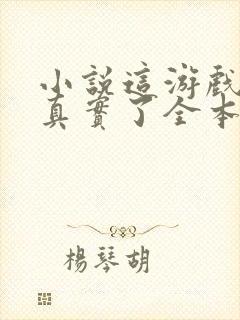 小說這游戲
真實了全本
楊琴胡